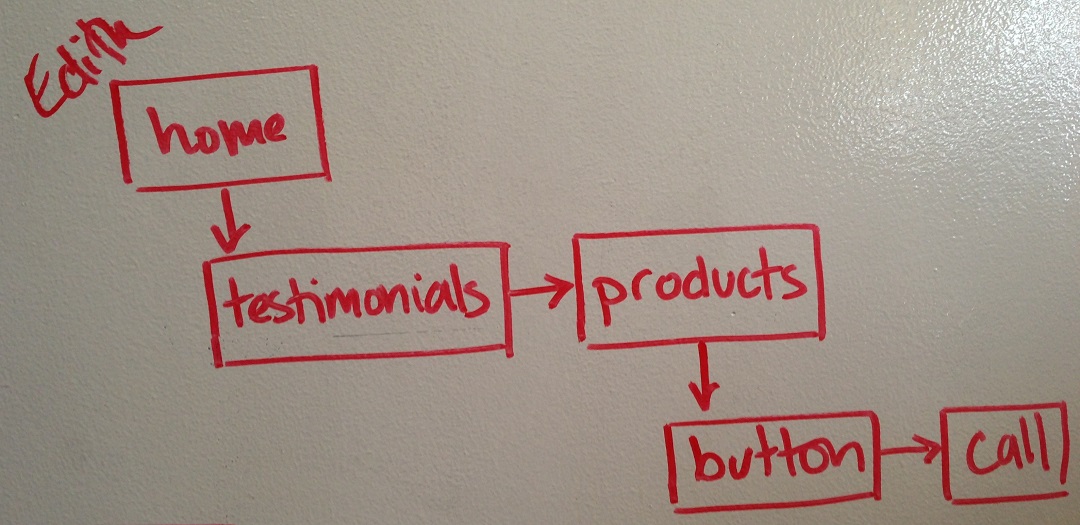 home
testimonials
products
button
call